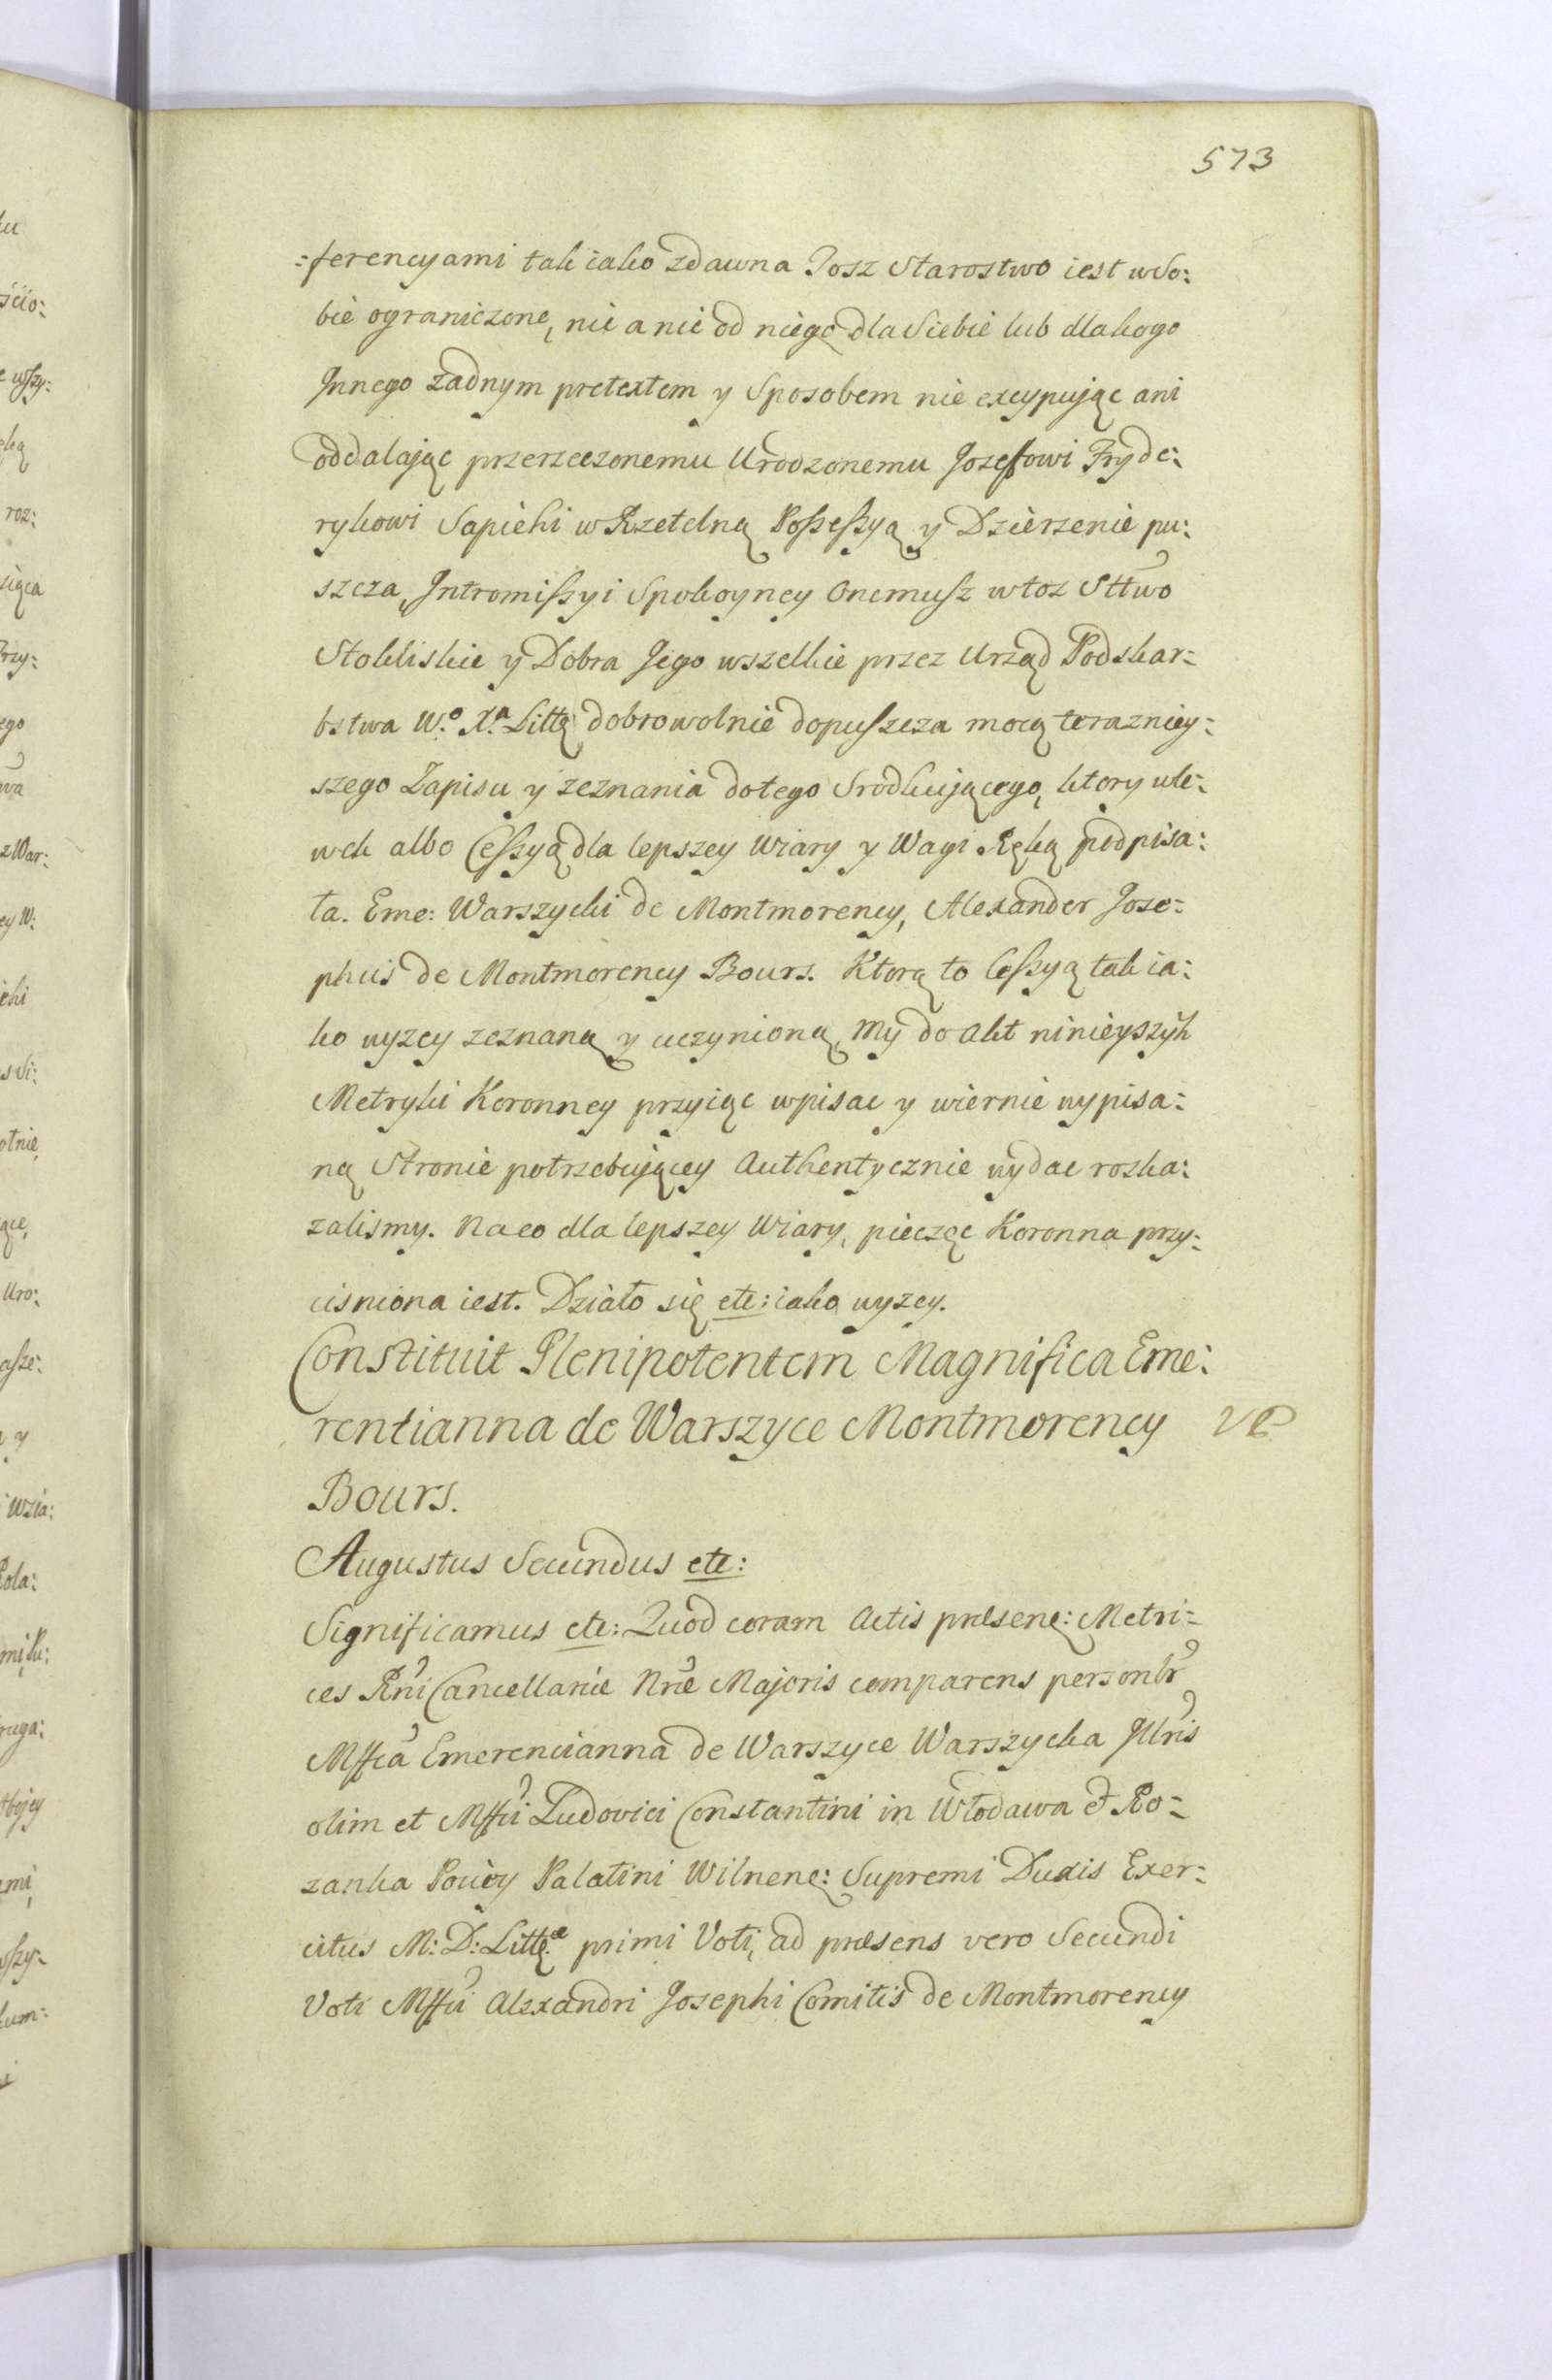 573
=ferencyami tak iako zdawna Tosz Starostwo iest w So:
bie ograniczone, nic a nic od niego dla Siebie lub dla kogo
Innego żadnym pretextem y Sposobem nie excypując ani
oddalając przerzeczonemu Urodzonemu Jozeffowi Fryde:
rykowi Sapiehi w Rzetelną Possessyą y Dzierzenie pu:
szcza, Intromissyi Spokoyney Onemusz w toz Sttwo
Stokliskie y Dobra Jego wszelkie przez Urząd Podskar=
bstwa W.º X.ª Littę dobrowolnie dopuszcza mocą terazniey=
szego Zapisu y zeznania do tego Srodkującego, ktory ule=
wek albo Cessyą dla lepszey Wiary y Wagi Ręką podpisa:
ła. Eme: Warszycki de Montmorency, Alexander Jose=
phus de Montmorency Bours. Ktorą to Cessyą tak ia:
ko wyzey zeznaną y uczynioną, My do Akt ninieyszych
Metryki Koronney przyiąc wpisac y wiernie wypisa=
ną Stronie potrzebującey Authentycznie wydac roska:
zalismy. Na co dla lepszey Wiary, pieczęc Koronna przy=
cisniona iest. Działo się etc: iako wyzey.
Constituit Plenipotentem Magnifica Eme:
rentianna de Warszyce Montmorency
Bours.
Augustus Secundus etc:
Significamus etc: Quod coram Actis præsenę: Metri=
ces Rni Cancellariæ Nræ Majoris comparens personlr
Mffca Emerencianna de Warszyce Warszycka Illris
olim et Mffci Ludovici Constantini in Włodawa et Ro=
zanka Pociey Palatini Wilnenę: Supremi Ducis Exer=
citus M: D: Littę.æ primi Voti, ad præsens vero Secundi
Voti Mffci Alexandri Josephi Comitis de Montmorency